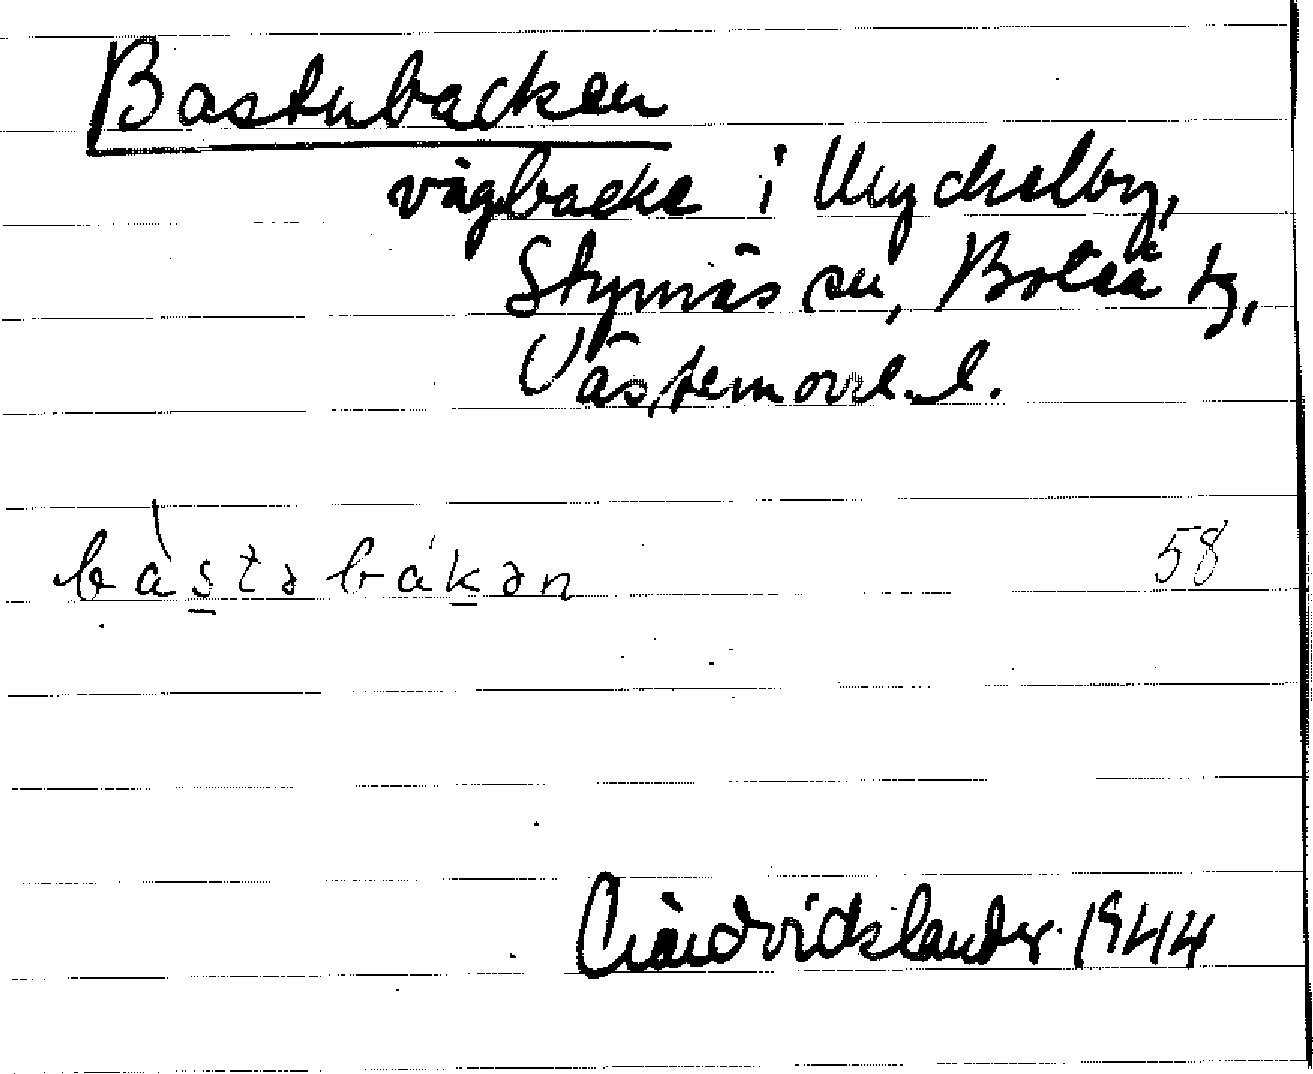 Bastubacken
vägbacke i Myckelby,
Styrnäs sn, Boteå tg,
Västernorrl. l.
bàstəbákən 58
Lindvidslander 1944